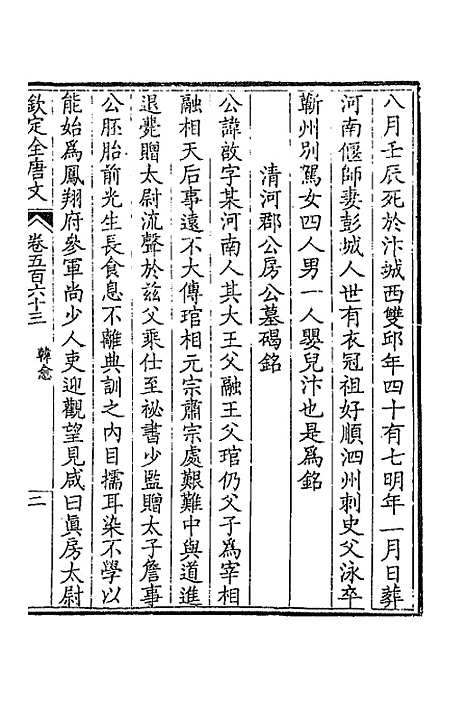 八月壬辰死於汴城西雙邱年四十有七明年一月日葬
河南偃師妻彭城人世有衣冠祖好順泗州刺史父泳卒
蘄州別駕女四人男一人嬰兒汴也是爲銘
清河郡公房公墓碣銘
公諱啟字某河南人其大王父融王父琯仍父子爲宰相
融相天后事遠不大傳琯相元宗肅宗處艱難中與道進
退薨贈太尉流聲於茲父乘仕至祕書少監贈太子詹事
公胚胎前光生長食息不離典訓之內目擩耳染不學以
能始爲鳳翔府參軍尚少人吏迎觀望見咸曰眞房太尉
欽定全唐文 卷五百六十三 韓愈 二